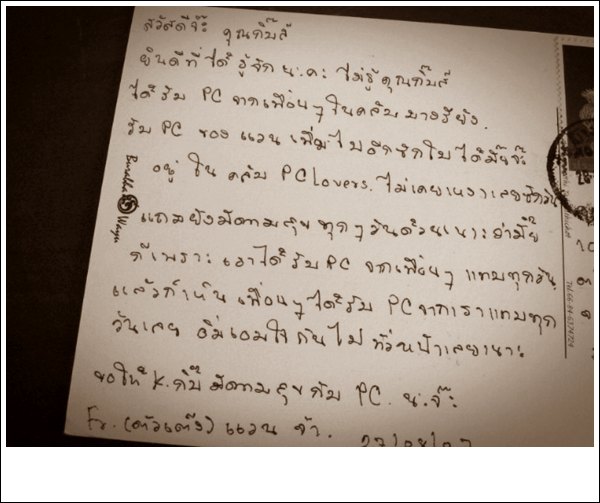 สวัสดีจ้ะ คุณกิ๊บส์
ยินดีที่ได้รู้จัก น.คะ ไม่รู้คุณกิ๊บส์
ได้รับ PC จากเพื่อนๆ ในคลับ บางรึยัง.
รับ PC ของ แวน เพิ่มไปอีกซักใบได้มั๊ยจ๊ะ
อยู่ ใน คลับ PC lovers. ไม่เคยเหงาเลยซักวัน
แถมยังมีความสุข ทุกๆ วันด้วยเนาะ ว่ามั๊ย
ก็เพราะ เราได้รับ PC จากเพื่อนๆ แทบทุกวัน
แล้วก็เห็น เพื่อนๆ ได้รับ PC จากเราแทบทุก
วันเลย อิ่มเอมใจกันไป ถ้วนหน้าเลยเนาะ
ขอให้ K.กิ๊บ มีความสุขกับ PC. น.จ๊ะ
Fr. (ตัวเต๊ง) แวน จ้า.
Buddha Ways
Tel.66-84-6374724